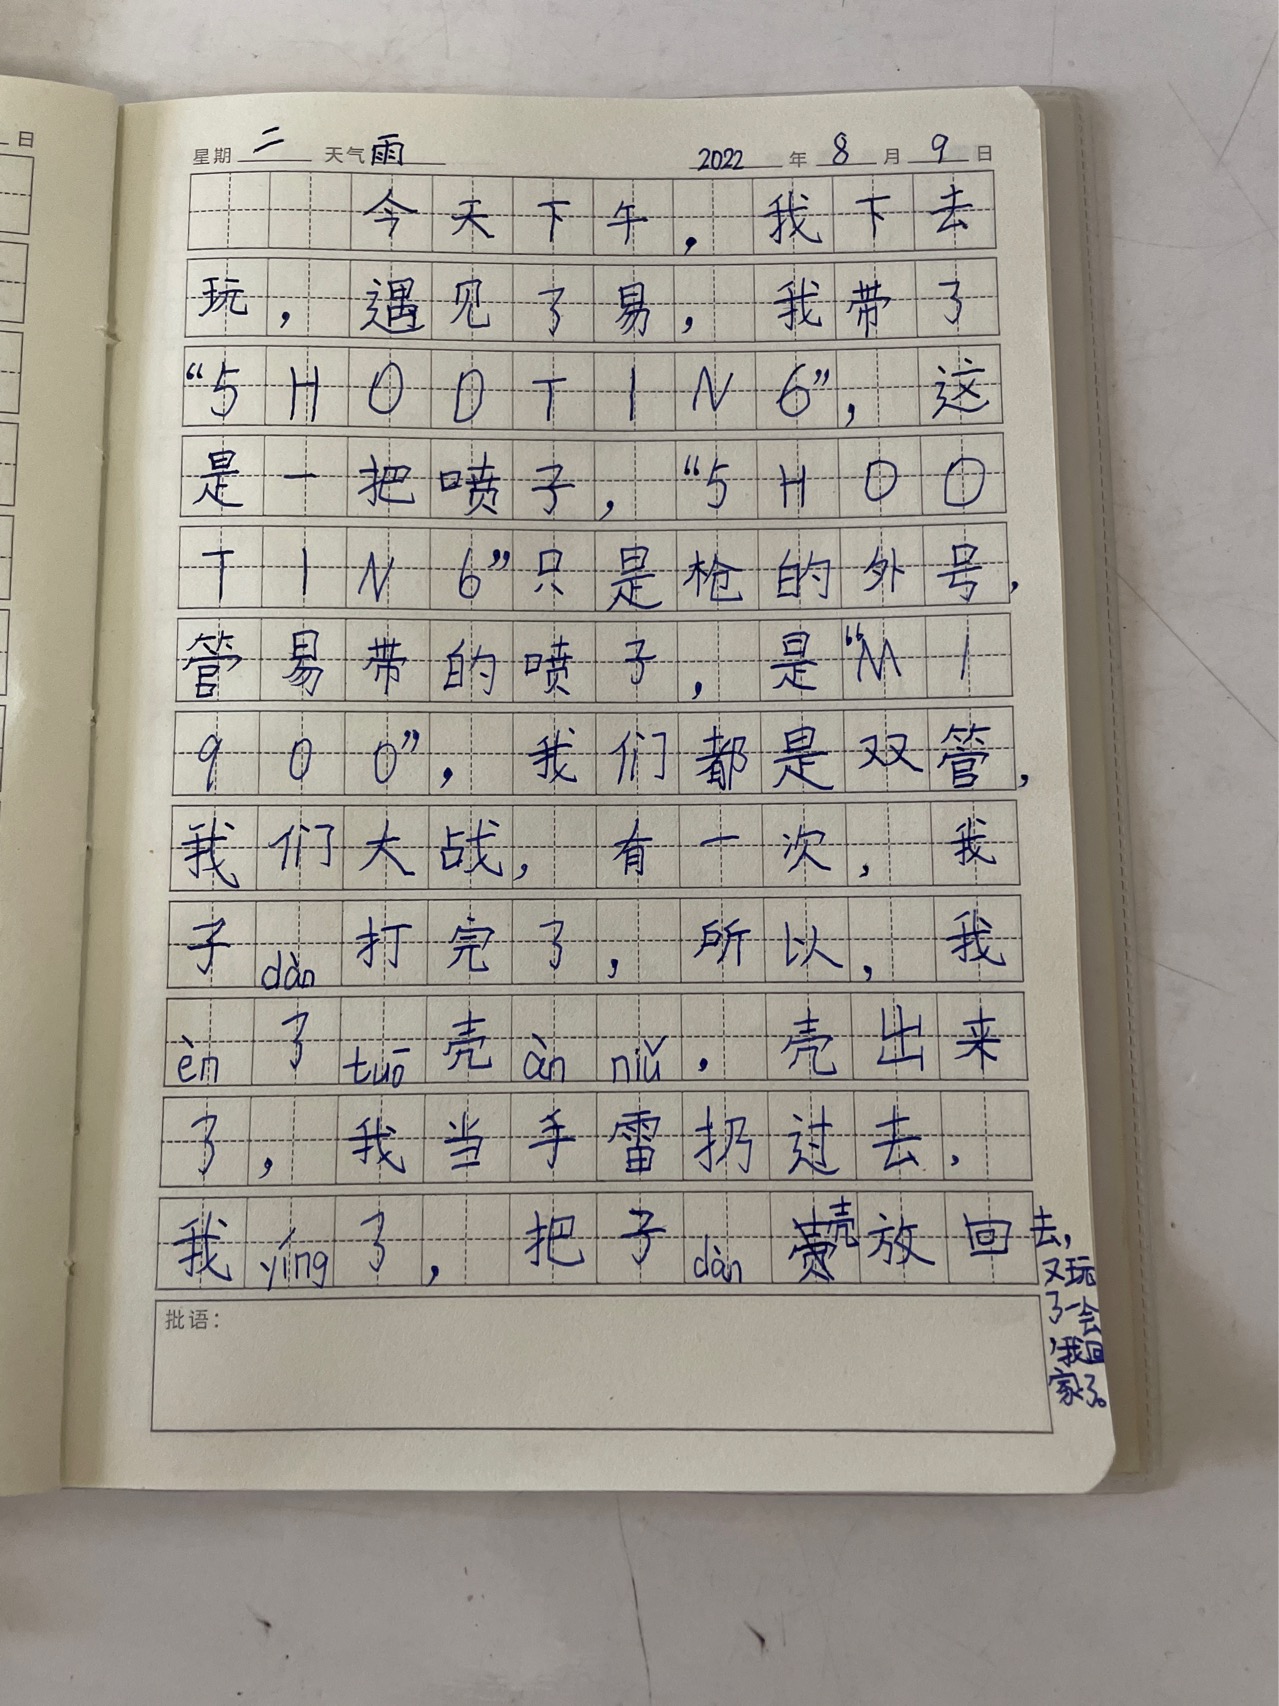 日
星期 二 天气 雨 2022 年 8 月 9 日
今天下午，我下去
玩，遇见了易，我带了
“5HOOTIN6”，这
是一把喷子，“5HOO
TIN6”只是枪的外号，
管易带的喷子，是“M1
900”，我们都是双管，
我们大战，有一次，我
子dàn打完了，所以，我
èn了tuō壳àn niǔ．壳出来
了，我当手雷扔过去，
我yíng了，把子dàn壳放回去，
又玩
了一会
，我回
家了。
批语：